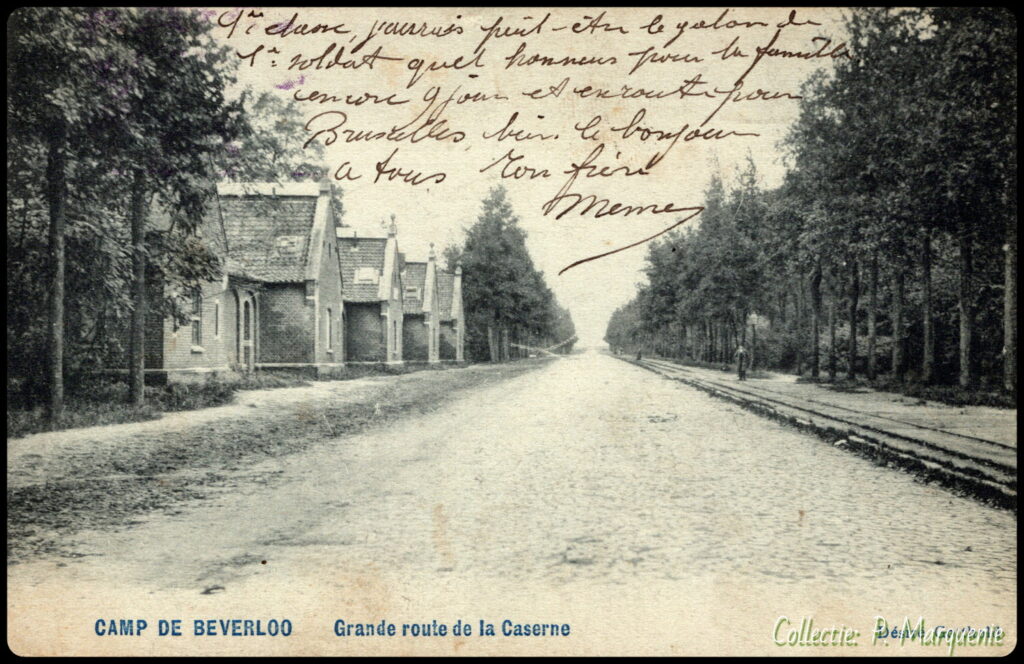 danc, pourrais peut-être le galon de
1r soldat quel honneur pour la famille
encore 9 jour et en route pour
Bruxelles, bien le bonjour
a tous Ton frère
Meme
CAMP DE BEVERLOO Grande route de la Caserne
Collectie: P. Marquenie